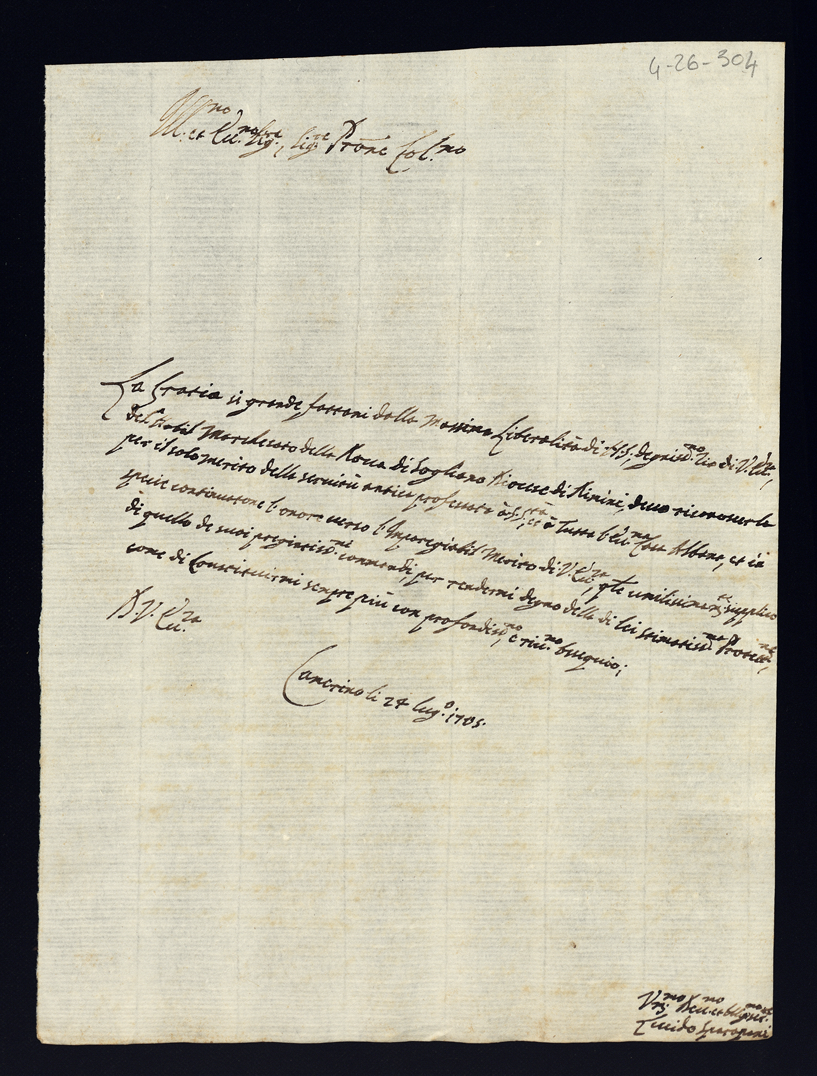 4-26-304
Ill.mo et Ecc.mo Sig.re, Sig.re Prone Col.mo
La Gratia si grande fattami dalla Massima Liberalità di N.S., degniss.mo Zio di V. Ecc.za,
del Nobil Marchesato della Rocca di Sogliano Diocese di Rimini, devo riconoscerla
per il solo merito della servitù antica professata à S. S.tà, et à Tutta l'Ecc.ma Casa Albana, et in
continuatione l'onore verso l'Impareggiabil Merito di V. Ecc.za, umilissimam.te supplico
di quello de suoi pregiatiss.mi comandi, per rendermi degno della di lei stimatiss.ma
come di Constituirmi sempre più con profondiss.mo, e riv.mo ossequio;
D. V. Ecc.za
li 24 Lug.o 1705.
V.mo D.mo et oblig.mo
Guido